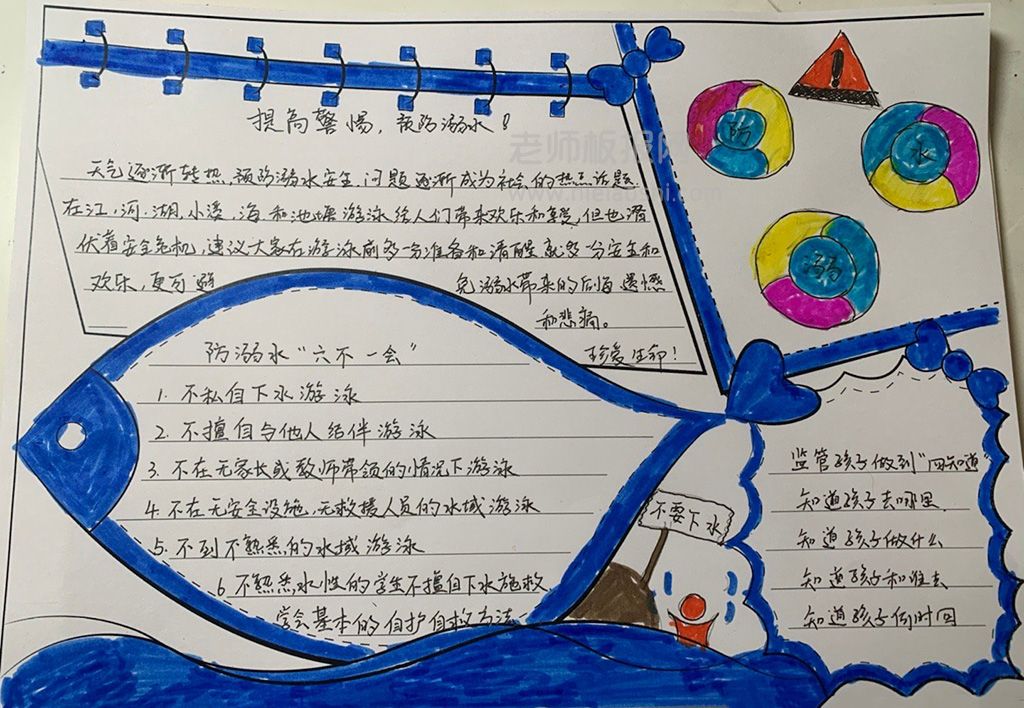 提高警惕，预防溺水！
天气逐渐转热，预防溺水安全，问题逐渐成为社会的热点话题.
在江，河.湖.小溪，海和池塘游泳给人们带来欢乐和享受，但也潜
伏着安全危机，建议大家在游泳前多一分准备和清醒就多一分安全和
欢乐，更可避免溺水带来的后悔遗憾
和悲痛。
珍爱生命！
防
水
溺
防溺水“六不一会”
1. 不私自下水游泳
2. 不擅自与他人结伴游泳
3. 不在无家长或教师带领的情况下游泳
4. 不在无安全设施.无救援人员的水域游泳
5. 不到不熟悉的水域游泳
6. 不熟悉水性的学生不擅自下水施救
学会基本的自护自救方法
不要下水
监管孩子做到“四知道”
知道孩子去哪里.
知道孩子做什么
知道孩子和谁去
知道孩子何时回
老师板报网